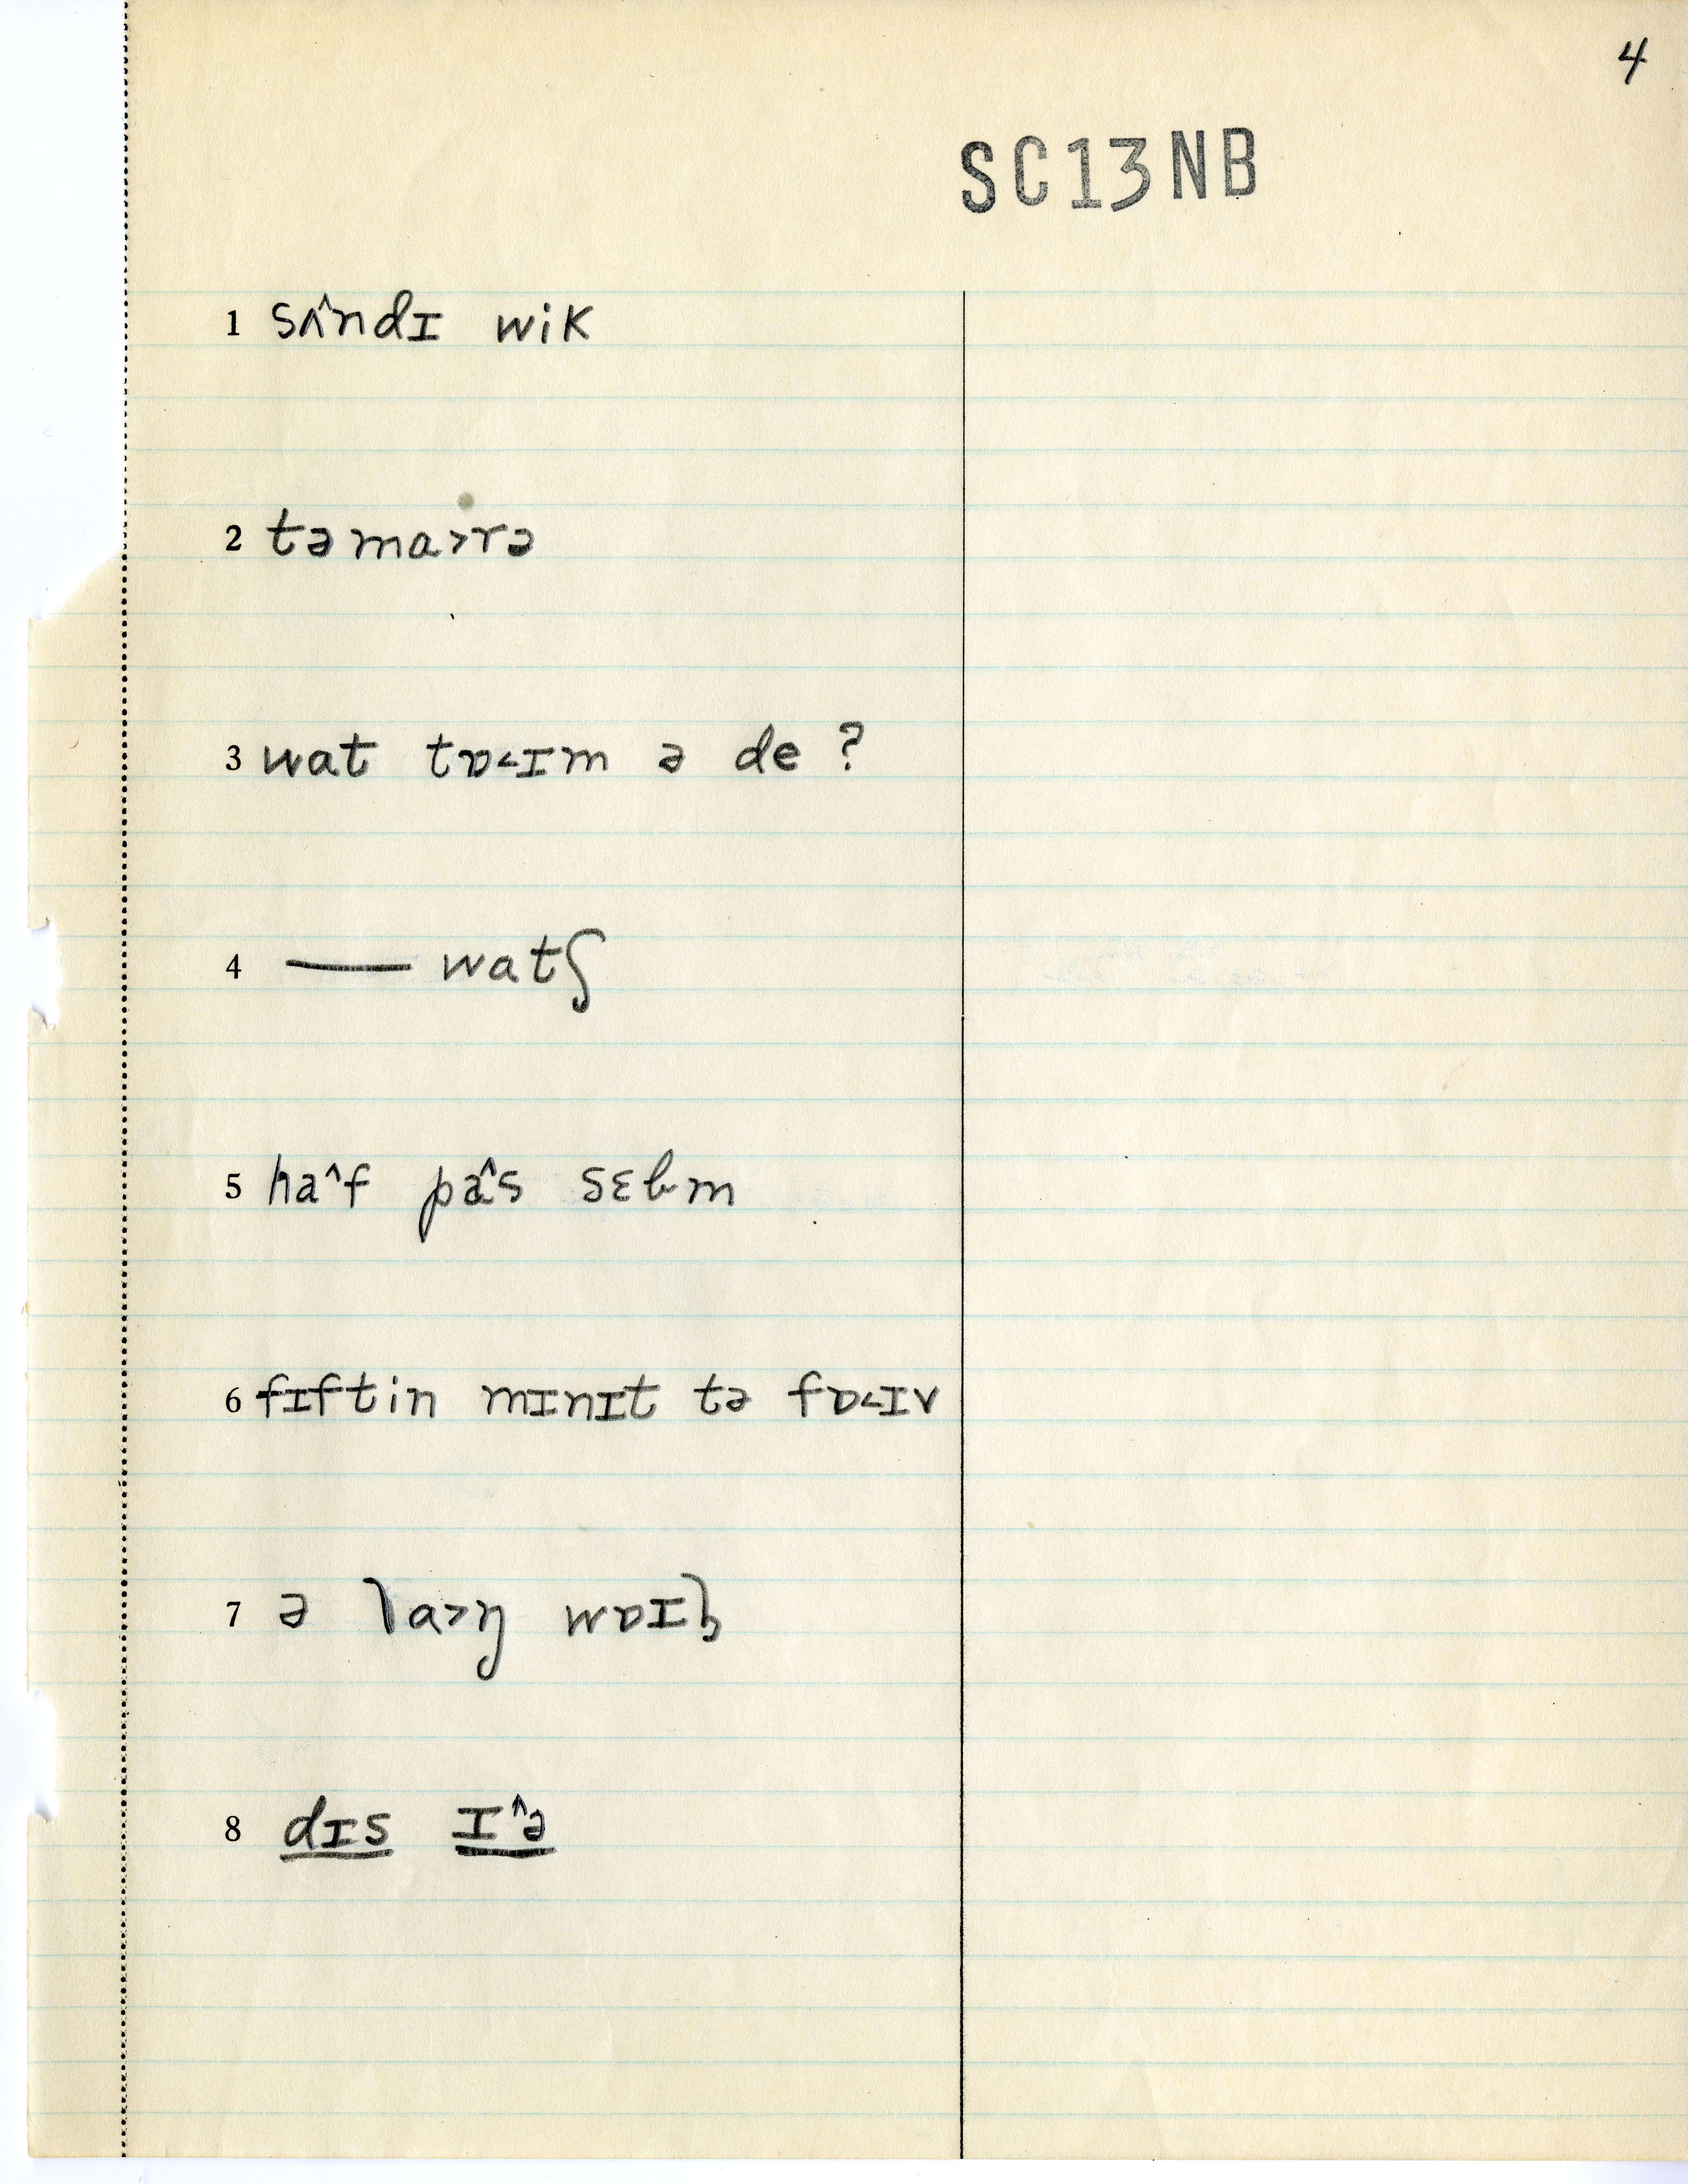 4
SC13NB
1 sʌ^ndɪ wik
2 təma>rə
3 wat tɒ<ɪm ə de ?
4 — watʃ
5 ha^f pa^s sɛbm
6 fɪftin mɪnɪt tə fɒ<ɪv
7 ə la>ŋ wɒɪl
8 dɪs ɪ^ə